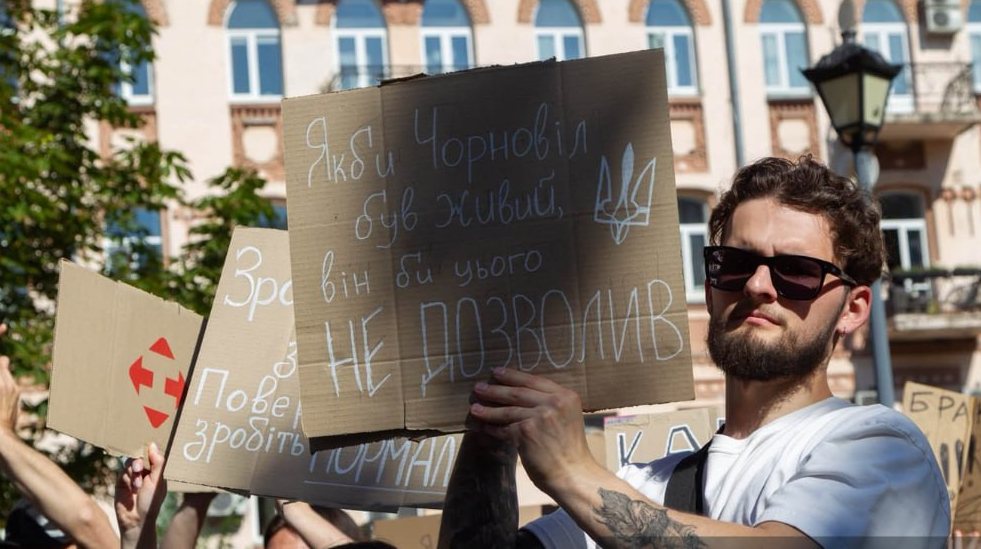 Якби Чорновіл
був живий,
він би цього
НЕ ДОЗВОЛИВ
зробіть
НОРМАЛ
БРА